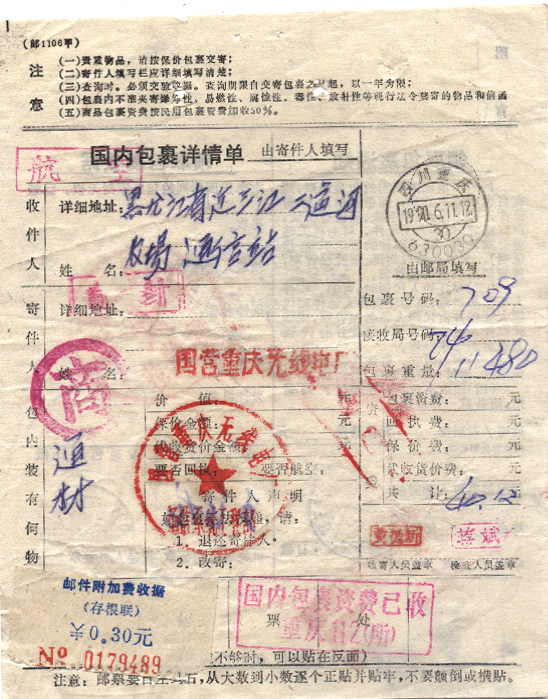 (邮1106甲)
注意
(一)贵重物品，请按保价包裹交寄；
(二)寄件人填写栏应详细填写清楚；
(三)查询时，必须交验收据。查询期限自交寄包裹之日起，以一年为限；
(四)包裹内不准夹寄爆炸性、易燃性、腐蚀性、毒性、放射性等现行法令禁寄的物品和信函
(五)商品包裹资费按民用包裹资费加收50%。
国内包裹详情单 由寄件人填写
航空
四川重庆
1990.6.11.12
30
630030
由邮局填写
收件人
详细地址：黑龙江省建三江
农场 通信站
姓名：
寄件人
详细地址：
姓名：
商
国营重庆无线电厂
包裹号码：709
接收局号码：
包裹重量：11480
包内装有何物
通材
价值： 元
保价金额： 元
代收货价金额：
要否回执： 要否航空：
寄件人声明
1．退还寄件人．
2．改寄：
国营重庆无线电厂
包裹资费： 元
回执费： 元
保价费： 元
代收货价费： 元
共计： 元
收寄人员盖章 检查人员盖章
邮件附加费收据
(存根联)
￥0.30元
№ 0179489
国内包裹资费已收
票 处
(不够时，可以贴在反面)
注意：邮票要自左到右，从大数到小数逐个正贴并贴牢，不要颠倒或横贴。